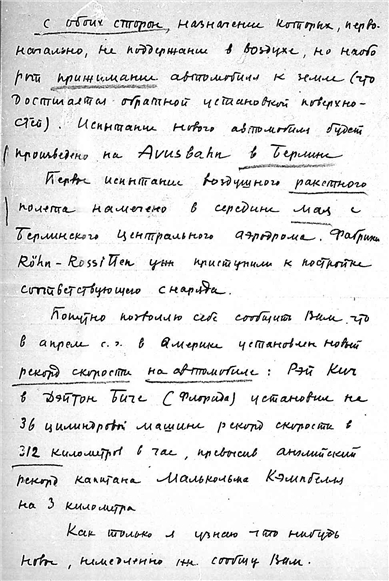 с обоих сторон, назначение которых, перво-
начально, не поддержание в воздухе, но наобо
рот прижимание автомобиля к земле (что
достигается обратной установкой поверхно-
стей). Испытание нового автомобиля будет
произведено на Avusbahn в Берлине
Первое испытание воздушного ракетного
полета намечено в середине мая с
Берлинского Центрального аэродрома. Фабрики
Röhn-Rossitten уже приступили к постройке
соответствующего снаряда.
Попутно позволю себе сообщить Вам, что
в апреле с.г. в Америке установлен новый
рекорд скорости на автомобиле: Рэй Кич
в Дэйтон Биче (Флорида) установил на
36 цилиндровой машине рекорд скорости в
312 километров в час, превысив английский
рекорд капитана Малькольма Кэмпбелля
на 3 километра
Как только я узнаю что нибудь
новое, немедленно же сообщу Вам.